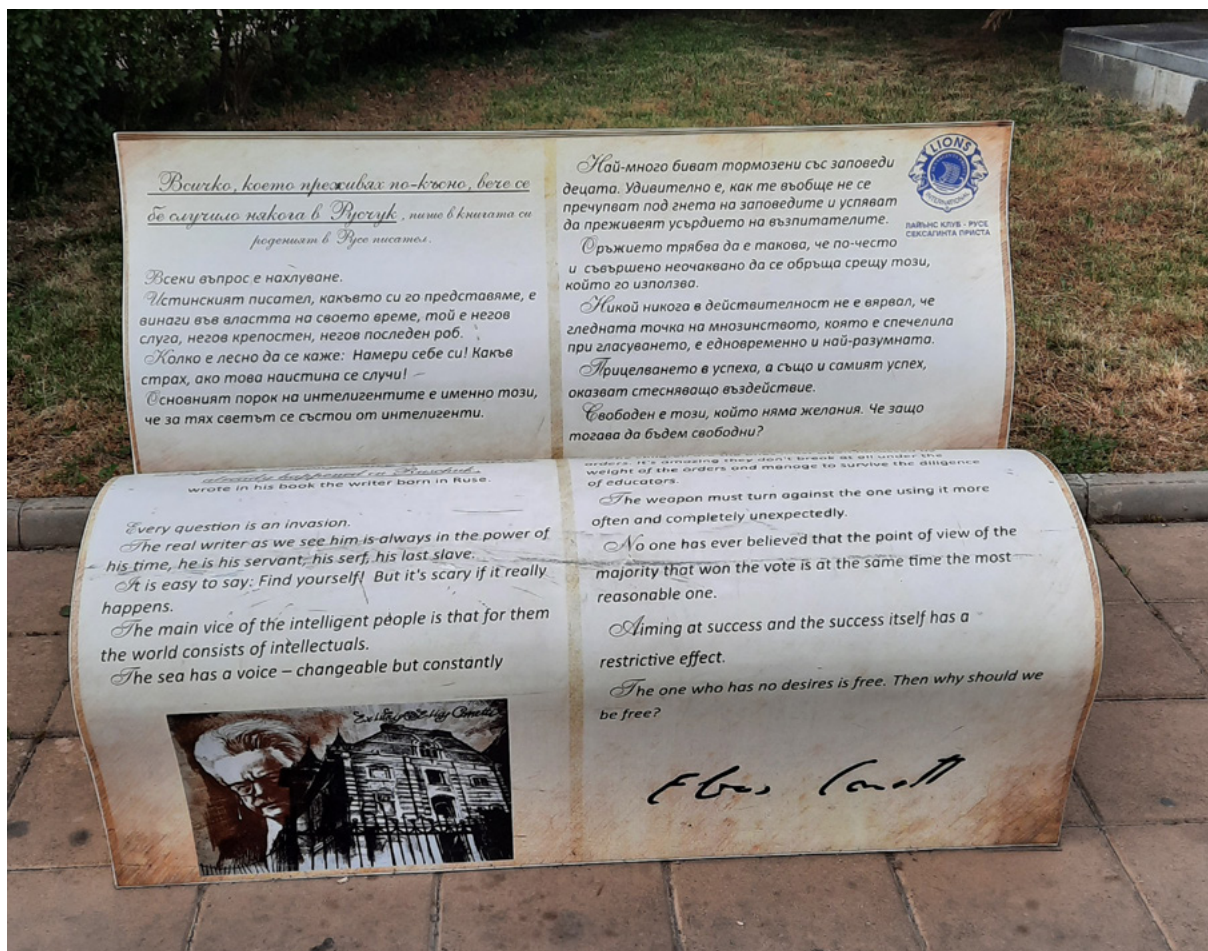 Всичко, което преживях по-късно, вече се
бе случило някога в Русчук, пише в книгата си
роденият в Русе писател.
Всеки въпрос е нахлуване.
Истинският писател, какъвто си го представяме, е
винаги във властта на своето време, той е негов
слуга, негов крепостен, негов последен роб.
Колко е лесно да се каже: Намери себе си! Какъв
страх, ако това наистина се случи!
Основният порок на интелигентите е именно този,
че за тях светът се състои от интелигенти.
Най-много биват тормозени със заповеди
децата. Удивително е, как те въобще не се
пречупват под гнета на заповедите и успяват
да преживеят усърдието на възпитателите.
Оръжието трябва да е такова, че по-често
и съвършено неочаквано да се обръща срещу този,
който го използва.
Никой никога в действителност не е вярвал, че
гледната точка на мнозинството, която е спечелила
при гласуването, е едновременно и най-разумната.
Прицелването в успеха, а също и самият успех,
оказват стесняващо въздействие.
Свободен е този, който няма желания. Че защо
тогава да бъдем свободни?
LIONS
INTERNATIONAL
ЛАЙЪНС КЛУБ - РУСЕ
СЕКСАГИНТА ПРИСТА
already happened in Ruschuk,
wrote in his book the writer born in Ruse.
Every question is an invasion.
The real writer as we see him is always in the power of
his time, he is his servant, his serf, his last slave.
It is easy to say: Find yourself! But it's scary if it really
happens.
The main vice of the intelligent people is that for them
the world consists of intellectuals.
The sea has a voice – changeable but constantly
Ex Libris Elias Canetti
orders. It's amazing they don't break at all under the
weight of the orders and manage to survive the diligence
of educators.
The weapon must turn against the one using it more
often and completely unexpectedly.
No one has ever believed that the point of view of the
majority that won the vote is at the same time the most
reasonable one.
Aiming at success and the success itself has a
restrictive effect.
The one who has no desires is free. Then why should we
be free?
Elias Canetti